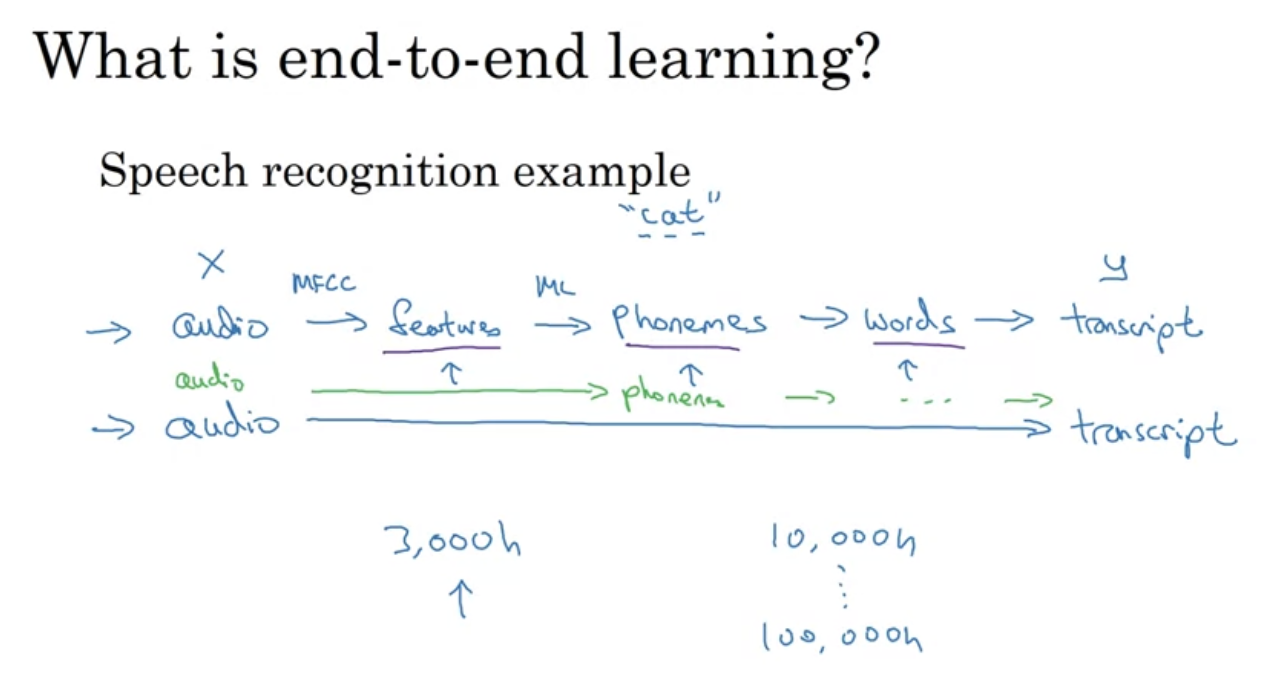 What is end-to-end learning?
Speech recognition example
"cat"
X y
MFCC ML
→ audio → features → phonemes → words → transcript
↑ ↑ ↑
audio → phonemes → ... →
→ audio → transcript
3,000h 10,000h
↑ ⋮
100,000h